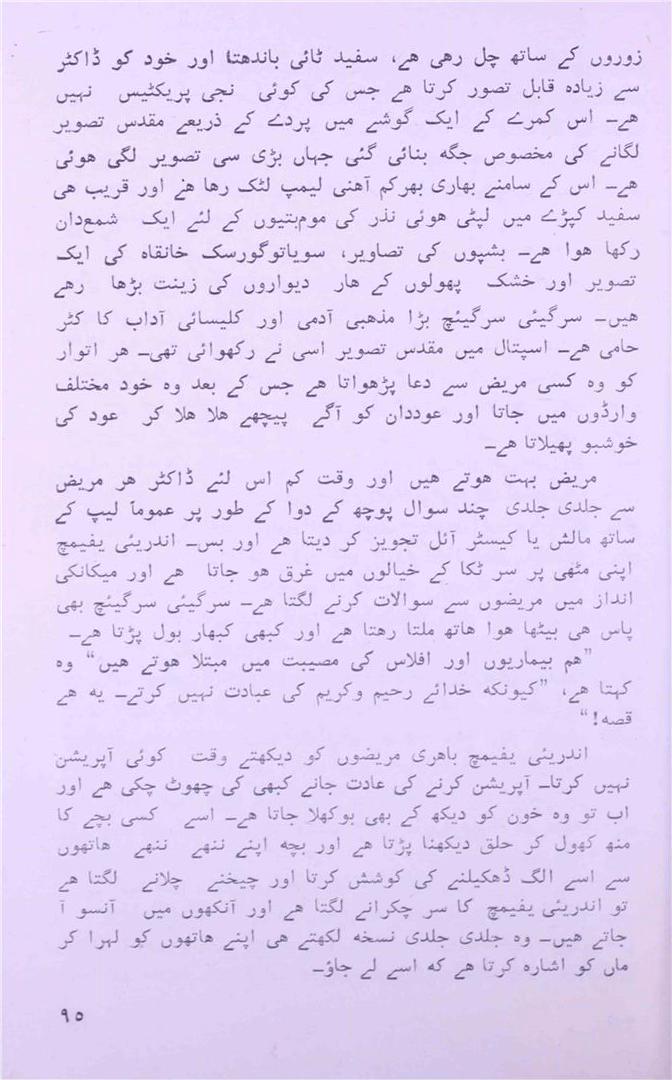 زوروں کے ساتھ چل رهی هے، سفید ٹائی باندهتا اور خود کو ڈاکٹر
سے زیاده قابل تصور کرتا هے جس کی کوئی نجی پریکٹیس نہیں
هے۔ اس کمرے کے ایک گوشے میں پردے کے ذریعے مقدس تصویر
لگانے کی مخصوص جگه بنائی گئی جہاں بڑی سی تصویر لگی هوئی
هے۔ اس کے سامنے بهاری بهرکم آهنی لیمپ لٹک رها هے اور قریب هی
سفید کپڑے میں لپٹی هوئی نذر کی موم‌بتیوں کے لئے ایک شمع‌دان
رکها هوا هے۔ بشپوں کی تصاویر، سویاتوگورسک خانقاه کی ایک
تصویر اور خشک پهولوں کے هار دیواروں کی زینت بڑها رهے
هیں۔ سرگیئی سرگیئچ بڑا مذهبی آدمی اور کلیسائی آداب کا کٹر
حامی هے۔ اسپتال میں مقدس تصویر اسی نے رکهوائی تهی۔ هر اتوار
کو وه کسی مریض سے دعا پڑهواتا هے جس کے بعد وه خود مختلف
وارڈوں میں جاتا اور عوددان کو آگے پیچهے هلا هلا کر عود کی
خوشبو پهیلاتا هے۔
مریض بہت هوتے هیں اور وقت کم اس لئے ڈاکٹر هر مریض
سے جلدی جلدی چند سوال پوچھ کے دوا کے طور پر عموماً لیپ کے
ساتھ مالش یا کیسٹر آئل تجویز کر دیتا هے اور بس۔ اندریئی یفیمچ
اپنی مٹهی پر سر ٹکا کے خیالوں میں غرق هو جاتا هے اور میکانکی
انداز میں مریضوں سے سوالات کرنے لگتا هے۔ سرگیئی سرگیئچ بهی
پاس هی بیٹها هوا هاتھ ملتا رهتا هے اور کبهی کبهار بول پڑتا هے۔
”هم بیماریوں اور افلاس کی مصیبت میں مبتلا هوتے هیں“ وه
کہتا هے، ”کیونکه خدائے رحیم وکریم کی عبادت نہیں کرتے۔ یه هے
قصه!“
اندریئی یفیمچ باهری مریضوں کو دیکهتے وقت کوئی آپریشن
نہیں کرتا۔ آپریشن کرنے کی عادت جانے کبهی کی چهوٹ چکی هے اور
اب تو وه خون کو دیکھ کے بهی بوکهلا جاتا هے۔ اسے کسی بچے کا
منھ کهول کر حلق دیکهنا پڑتا هے اور بچه اپنے ننهے ننهے هاتهوں
سے اسے الگ ڈهکیلنے کی کوشش کرتا اور چیخنے چلانے لگتا هے
تو اندریئی یفیمچ کا سر چکرانے لگتا هے اور آنکهوں میں آنسو آ
جاتے هیں۔ وه جلدی جلدی نسخه لکهتے هی اپنے هاتهوں کو لہرا کر
ماں کو اشاره کرتا هے که اسے لے جاؤ۔
۹۵